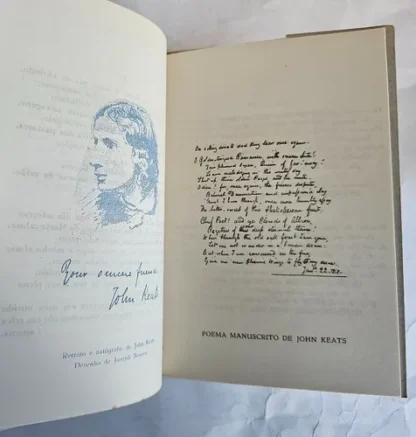 Your sincere friend
John Keats
Retrato e autógrafo de John Keats
Desenho de Joseph Severn
On sitting down to King Lear once again.
O Golden tongued Romance, with serene Lute!
Fair plumed Syren, Queen of far-away!
Leave melodizing on this wintry day
Shut up thine olden Pages, and be mute.
Adieu! for, once again, the fierce dispute,
Betwixt Damnation and impassion'd clay
Must I burn through; once more humbly assay
The bitter-sweet of this Shakespearean fruit.
Chief Poet! and ye Clouds of Albion,
Begetters of our deep eternal theme!
When through the old oak forest I am gone,
Let me not wander in a barren dream:
But when I am consumed in the fire,
Give me new Phoenix wings to fly at my desire.
Jan 22. 1818
POEMA MANUSCRITO DE JOHN KEATS